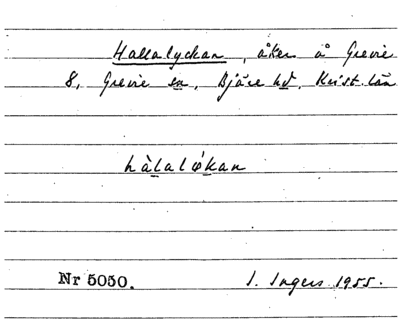 Hallalyckan, åker å Grevie
8, Grevie sn, Bjäre hd, Krist. län
hàlaløkan
Nr 5050. I. Ingers 1955.